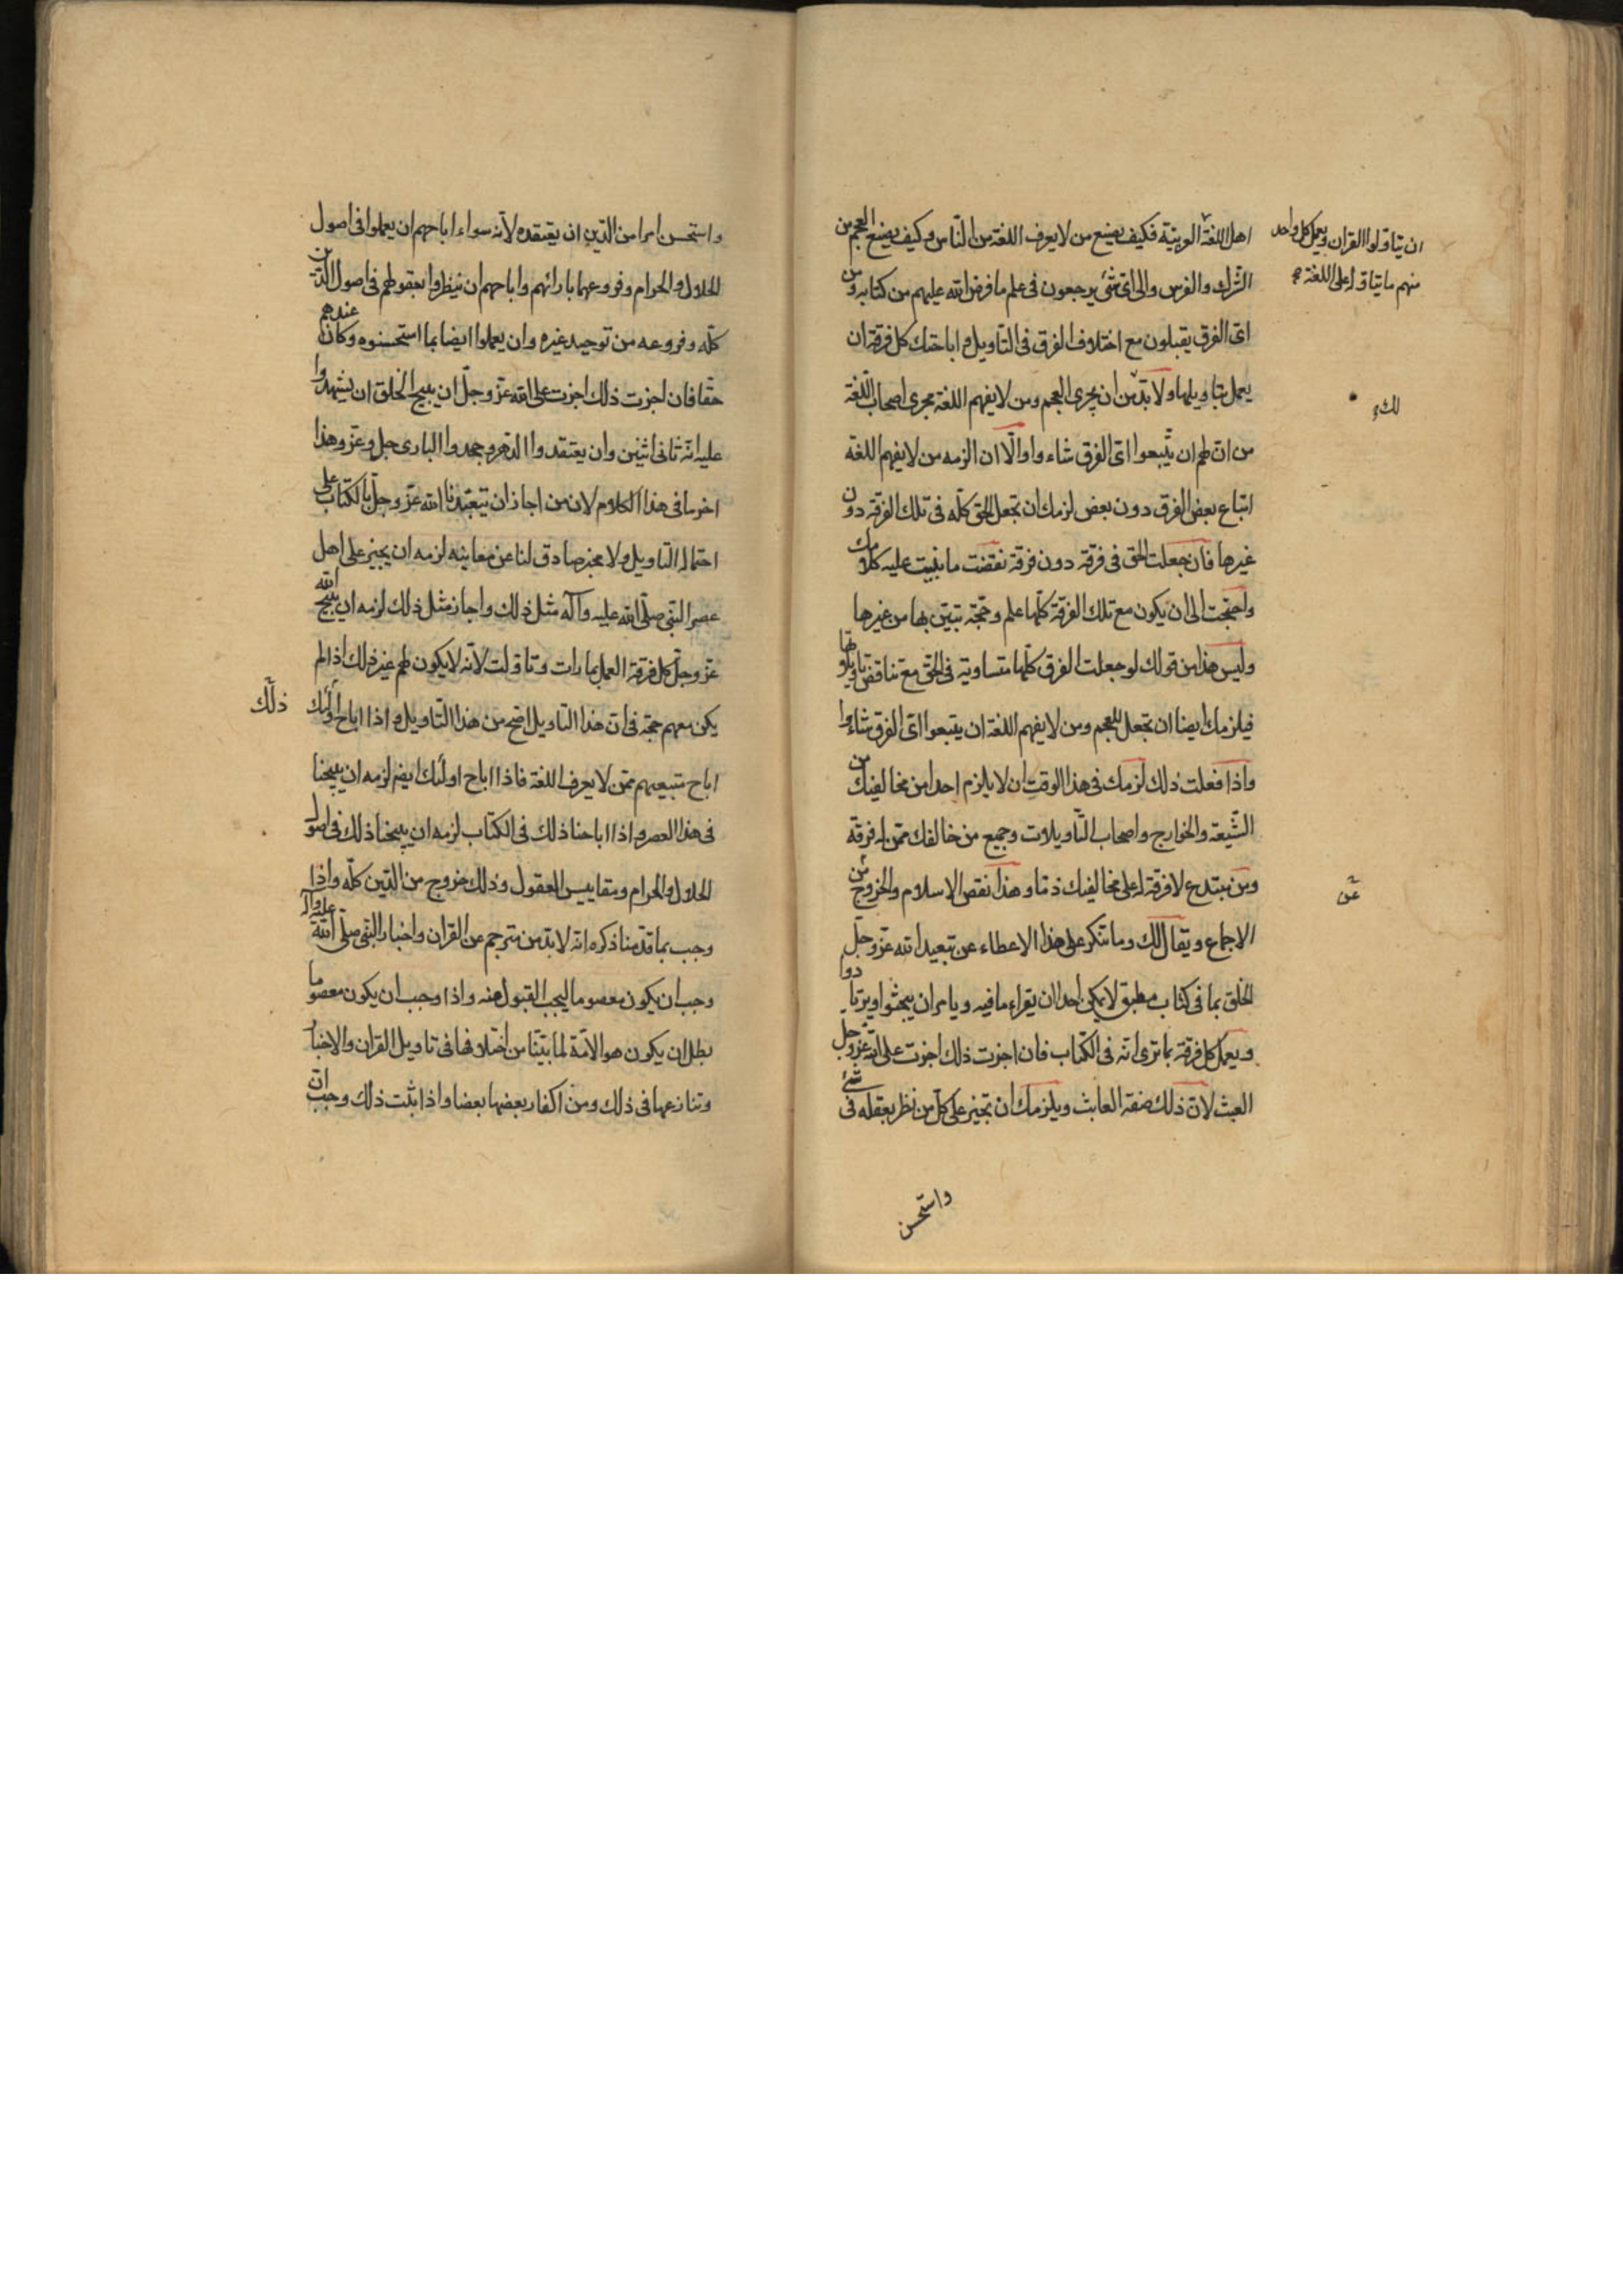 اهل اللغة العربية فكيف يصنع من لا يعرف اللغة من الناس وكيف يصنع العجم من
الترك والفرس والى اى شئ يرجعون فى علم ما فرض الله عليهم من كتابه ومن
اى الفرق يقبلون مع اختلاف الفرق فى التاويل واباحتك كل فرقة ان
يعمل بتاويلها ولا بد من ان يجرى العجم ومن لا يفهم اللغة مجرى اصحاب اللغة
من ان لهم ان يتبعوا اى الفرق شاءوا والا ان الزمه من لا يفهم اللغة
اتباع بعض الفرق دون بعض لزمك ان تجعل الحق كله فى تلك الفرقة دون
غيرها فان جعلت الحق فى فرقة دون فرقة نقضت ما بنيت عليه كلامك
واحتجت الى ان يكون مع تلك الفرقة كلها علم وحجة تبين بها من غيرها
وليس هذا من قولك لو جعلت الفرق كلها متساوية فى الحق مع تناقض تاويلاتها
فيلزمك ايضا ان تجعل للعجم ومن لا يفهم اللغة ان يتبعوا اى الفرق شاءوا
واذا فعلت ذلك لزمك فى هذا الوقت ان لا يلزم احدا من مخالفيك من
الشيعة والخوارج واصحاب التاويلات وجميع من خالفك ممن له فرقة
ومن مبتدع لا فرقة له على مخالفيك ذما وهذا نقض الاسلام والخروج من
الاجماع ويقال لك وما تنكر على هذا الاعطاء عن تبعيد الله عز وجل
الخلق بما فى كتاب مطبق لا يمكن احدا ان يقراء ما فيه ويامر ان يبحثوا ويرتادوا
ويعمل كل فرقة بما ترى انه فى الكتاب فان اجزت ذلك اجزت على الله عز وجل
العبث لان ذلك صفة العابث ويلزمك ان تجيز على كل من نظر بعقله فى شئ
واستحسن
ان يتاولوا القران ويعمل كل واحد
منهم ما يتاوله على اللغة
عن
واستحسن امرا من الدين ان يعتقده لانه سواء اباحهم ان يعملوا فى اصول
الحلال والحرام وفروعهما بارائهم واباحهم ان ينظروا بعقولهم فى اصول الدين
كله وفروعه من توحيد غيره وان يعملوا ايضا بما استحسنوه وكان عندهم
حقا فان اجزت ذلك اجزت على الله عز وجل ان يبيح الخلق ان يشهدوا
عليه انه ثانى اثنين وان يعتقدوا الدهر وجحدوا البارى جل وعز وهذا
اخر ما فى هذا الكلام لان من اجاز ان يتعبدنا الله عز وجل بالكتاب على
احتماله التاويل ولا مخبر صادق لنا عن معانيه لزمه ان يجيز على اهل
عصر النبى صلى الله عليه وآله مثل ذلك واجاز مثل ذلك لزمه ان يبيح الله
عز وجل كل فرقة العمل بما رات وتاولت لانه لا يكون لهم غير ذلك اذا لم
يكن معهم حجة فى ان هذا التاويل اصح من هذا التاويل واذا اباح اولئك
ذلك
اباح متبعيهم ممن لا يعرف اللغة فاذا اباح اولئك ايضا لزمه ان يبيحنا
فى هذا العصر واذا اباحنا ذلك فى الكتاب لزمه ان يبيحنا ذلك فى اصول
الحلال والحرام ومقاييس العقول وذلك خروج من الدين كله واذا
وجب بما قدمنا ذكره انه لا بد من مترجم عن القران واخبار النبى صلى الله عليه وآله
وجب ان يكون معصوما ليجب القبول منه واذا وجب ان يكون معصوما
بطل ان يكون هو الامة لما بينا من اختلافها فى تاويل القران والاخبار
وتنازعها فى ذلك ومن اكفار بعضها بعضا واذا ثبت ذلك وجب ان